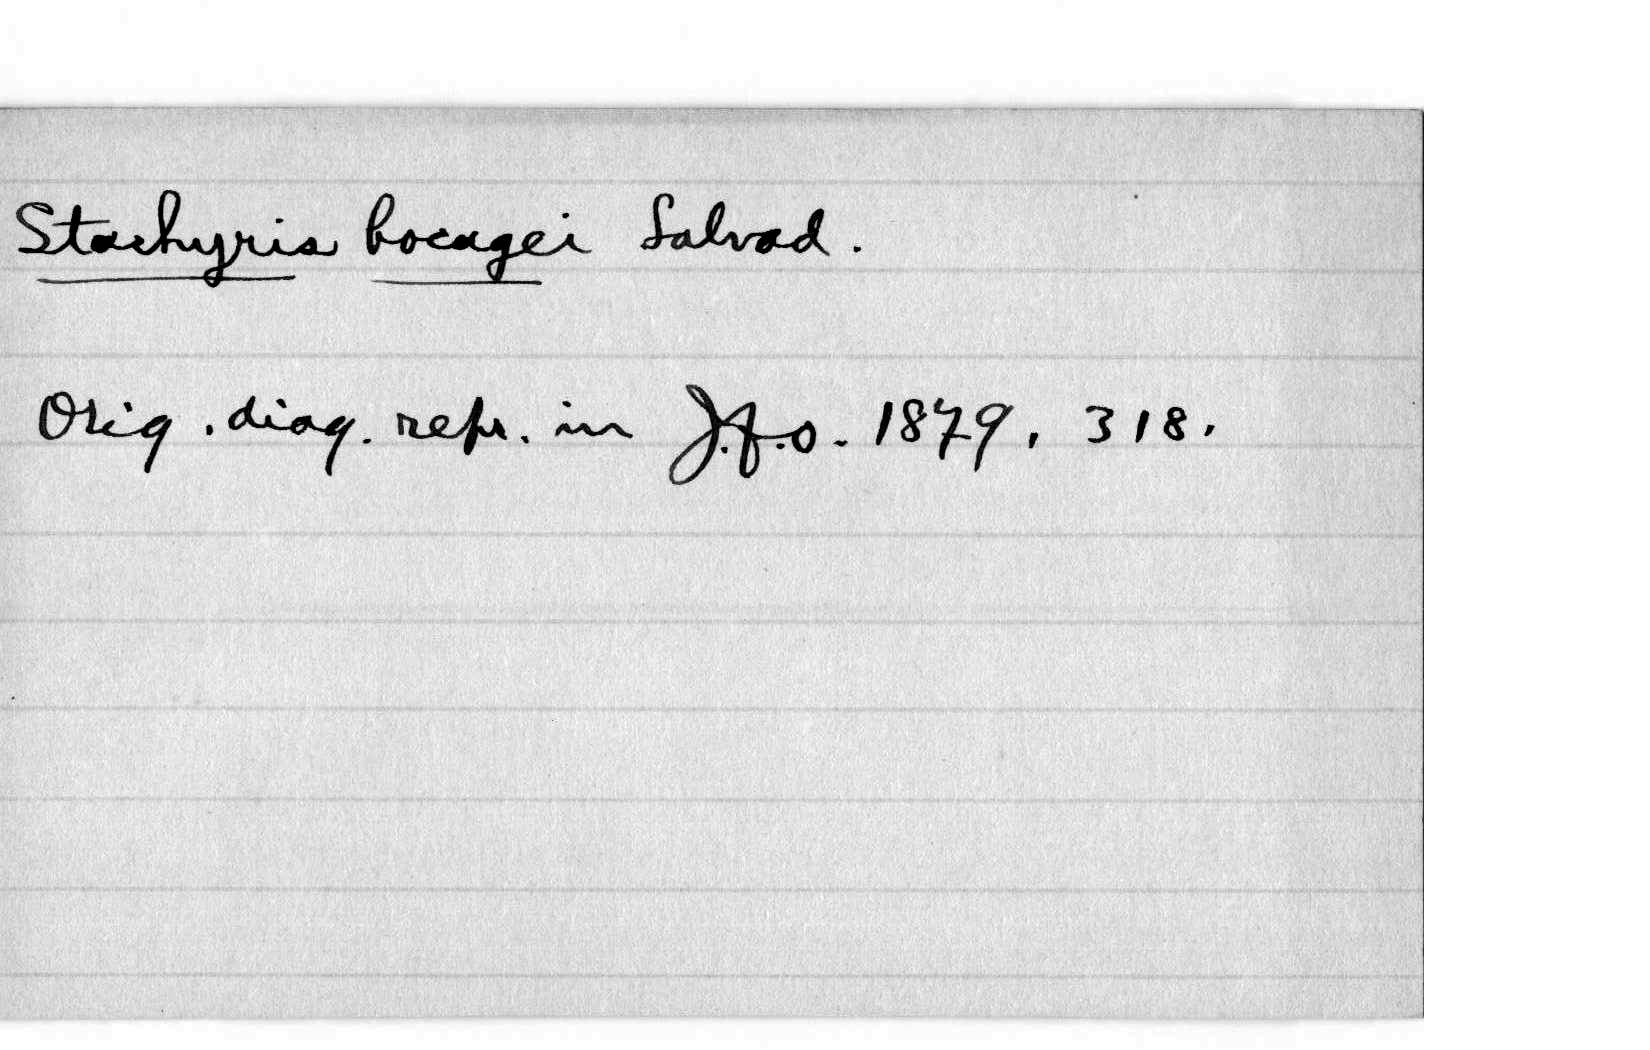 Stachyris bocagei Salvad.
Orig. diag. repr. in J.f.O. 1879, 318.